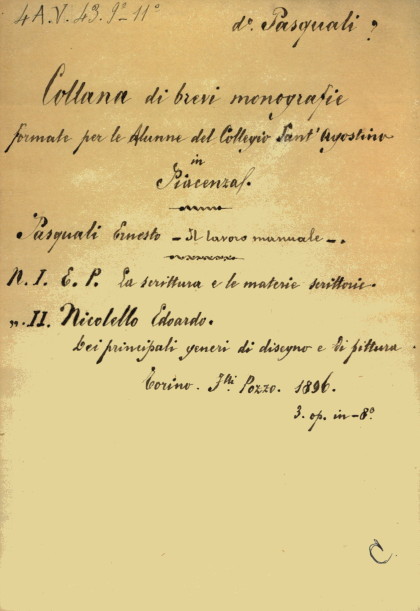 4 A.V. 43. 9º - 11º
dº. Pasquali ?
Collana di brevi monografie
formate per le Alunne del Collegio Sant' Agostino
in
Piacenza.
Pasquali Ernesto - Il lavoro manuale -.
N. I. E. P. La scrittura e le materie scrittorie.
„. II. Nicolello Edoardo.
Dei principali generi di disegno e di pittura.
Torino. Flli Pozzo. 1896.
3. op. in - 8º
C